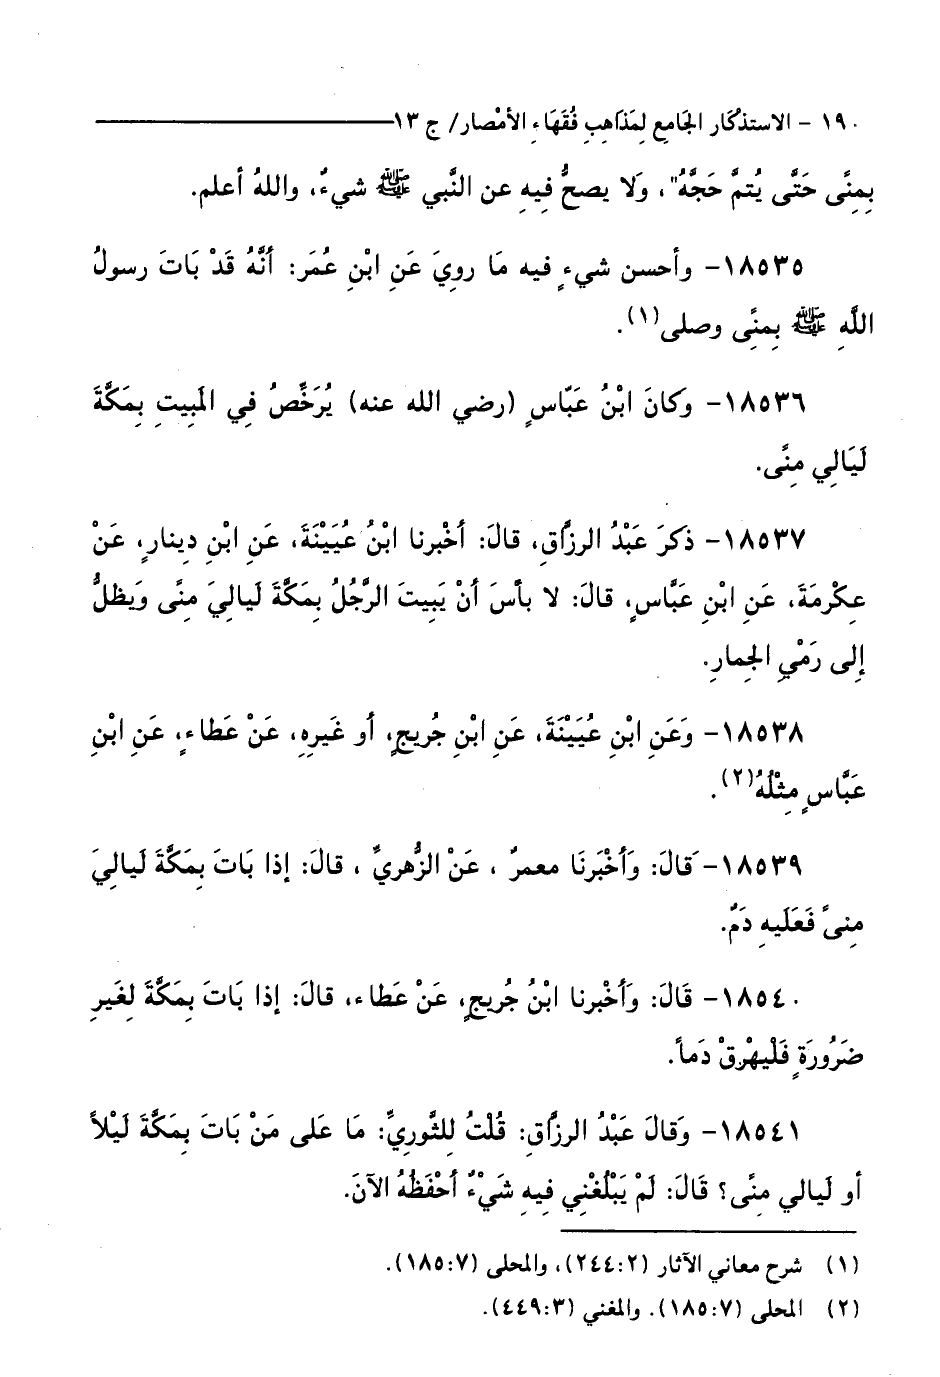 ١٩٠ - الاستذكار الجامع لِمَذاهِبِ فُقَهَاءِ الأمْصار/ ج ١٣
بِمِنَّى حَتَّى يُتمَّ حَجَّهُ"، وَلا يصحُّ فيهِ عن النَّبي ﷺ شيءٌ، واللهُ أعلم.
١٨٥٣٥- وأحسن شيءٍ فيه مَا رويَ عَنِ ابْنِ عُمَر: أنَّهُ قَدْ بَاتَ رسولُ
اللَّهِ ﷺ بِمنًى وصلى(١).
١٨٥٣٦- وكانَ ابْنُ عَبّاسٍ (رضي الله عنه) يُرَخَّصُ فِي المَبِيتِ بِمَكَّةَ
لَيَالِي مِنَّى.
١٨٥٣٧- ذكرَ عَبْدُ الرزَّاقِ، قالَ: أخْبرنا ابْنُ عُيَيْنَةَ، عَنِ ابْنِ دِينارٍ، عَنْ
عِكْرمَةَ، عَنِ ابْنِ عَبَّاسٍ، قالَ: لا بأسَ أنْ يَبِيتَ الرَّجُلُ بِمَكَّةَ لَيالِيَ مِنَّى وَيظلُّ
إِلى رَمْيِ الجِمارِ.
١٨٥٣٨- وَعَنِ ابْنِ عُيَيْنَةَ، عَنِ ابْنِ جُريجٍ، أو غَيرِهِ، عَنْ عَطاءٍ، عَنِ ابْنِ
عَبَّاسٍ مِثْلُهُ(٢).
١٨٥٣٩- قالَ: وَأخْبَرَنَا معمرٌ ، عَنْ الزُّهريِّ ، قالَ: إذا بَاتَ بِمَكَّةَ لَياليَ
مِنىً فَعَليهِ دَمٌ.
١٨٥٤٠- قَالَ: وَأخْبرنا ابْنُ جُريجٍ، عَنْ عَطاء، قالَ: إذا بَاتَ بِمَكَّةَ لِغَيرِ
ضَرُورَةٍ فَلْيهْرِقْ دَماً.
١٨٥٤١- وَقالَ عَبْدُ الرزَّاقِ: قُلْتُ لِلثَّوريِّ: مَا عَلى مَنْ بَاتَ بِمَكَّةَ لَيْلاً
أو لَيالي مِنًى؟ قَالَ: لَمْ يَبْلُغْنِي فيهِ شَيْءٌ أحْفَظُهُ الآنَ.
(١) شرح معاني الآثار (٢٤٤:٢)، والمحلى (١٨٥:٧).
(٢) المحلى (١٨٥:٧). والمغني (٤٤٩:٣).